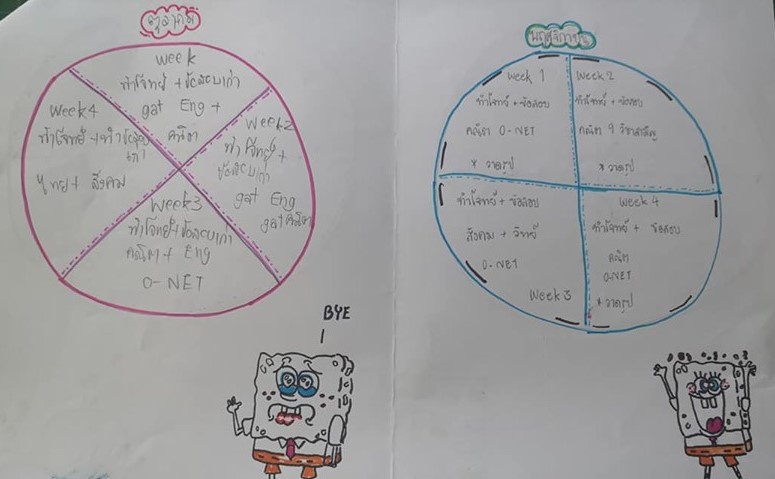 ตุลาคม
week
ทำโจทย์ + ข้อสอบเก่า
gat Eng +
คณิต
Week 2
ทำโจทย์ +
ข้อสอบเก่า
gat Eng
gat คณิต
Week 3
ทำโจทย์ + ข้อสอบเก่า
คณิต + Eng
O-NET
Week 4
ทำโจทย์ + ทำข้อสอบ
เก่า
ไทย + สังคม
BYE
พฤศจิกายน
Week 1
ทำโจทย์ + ข้อสอบ
คณิต O-NET
* วาดรูป
Week 2
ทำโจทย์ + ข้อสอบ
คณิต 9 วิชาสามัญ
* วาดรูป
ทำโจทย์ + ข้อสอบ
สังคม + วิทย์
O-NET
Week 3
Week 4
ทำโจทย์ + ข้อสอบ
คณิต
O-NET
* วาดรูป